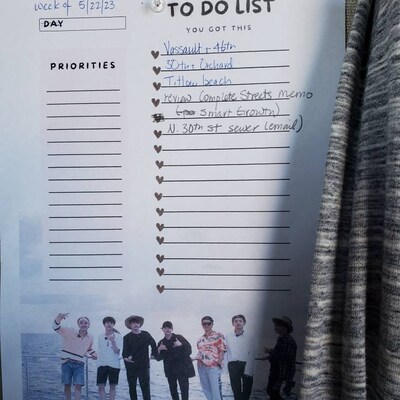 week of 5/22/23
TO DO LIST
DAY
YOU GOT THIS
PRIORITIES
Vassault + 46th
30th + Orchard
Titlow beach
review Complete Streets Memo
Smart Growth)
N. 30th st sewer (email)